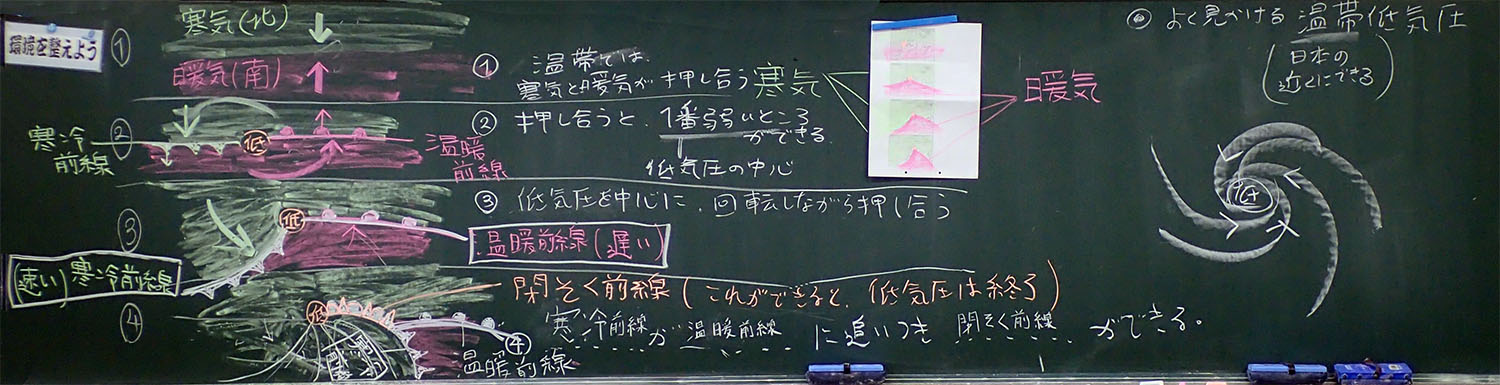 環境を整えよう
①
寒気(北)
暖気(南)
① 温帯では、
寒気と暖気が押し合う
寒気
暖気
②
寒冷
前線
低
温暖
前線
② 押し合うと、1番弱いところ
ができる。
低気圧の中心
③
低
③ 低気圧を中心に、回転しながら押し合う
温暖前線(遅い)
(速い)寒冷前線
④
低
閉そく前線(これができると、低気圧は終了)
④ 寒冷前線が温暖前線に追いつき閉そく前線ができる。
温暖前線
◎ よく見かける温帯低気圧
(日本の
近くにできる)
低